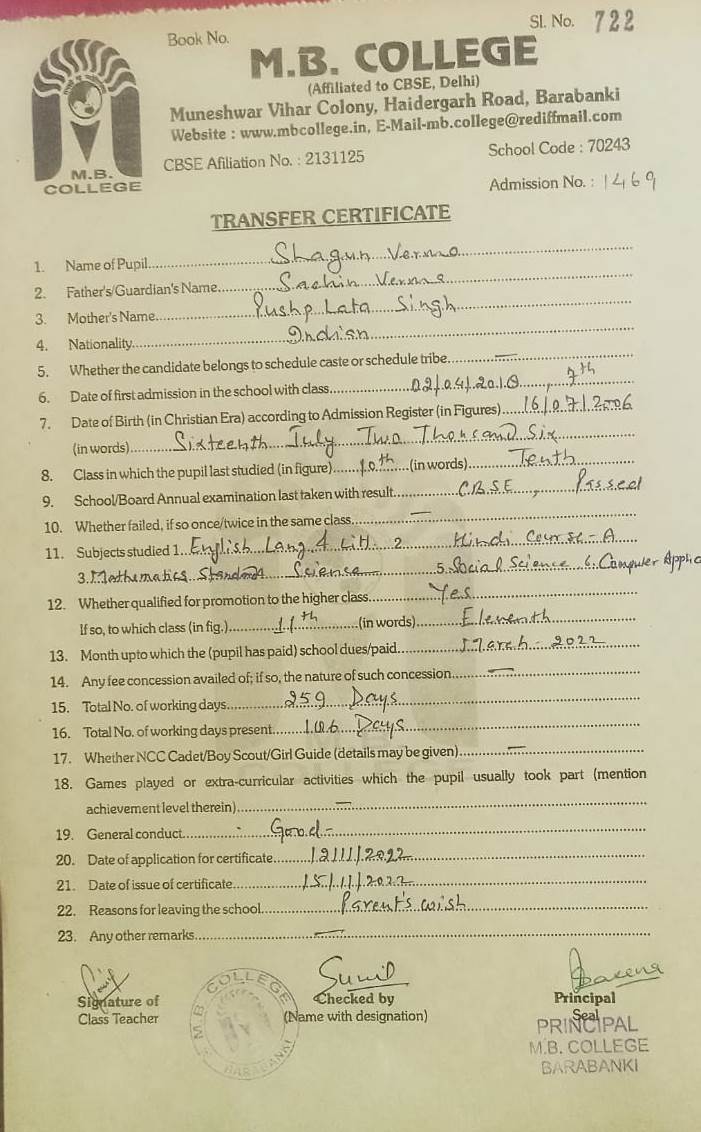 Book No.
Sl. No. 722
M.B. COLLEGE
(Affiliated to CBSE, Delhi)
Muneshwar Vihar Colony, Haidergarh Road, Barabanki
Website : www.mbcollege.in, E-Mail-mb.college@rediffmail.com
CBSE Afiliation No. : 2131125
School Code : 70243
M.B.
COLLEGE
Admission No. : 1469
TRANSFER CERTIFICATE
1. Name of Pupil Shagun Verma
2. Father's/Guardian's Name Sachin Verma
3. Mother's Name Pushp Lata Singh
4. Nationality Indian
5. Whether the candidate belongs to schedule caste or schedule tribe —
6. Date of first admission in the school with class 02/04/2018, 7th
7. Date of Birth (in Christian Era) according to Admission Register (in Figures) 16/07/2006
(in words) Sixteenth July Two Thousand Six
8. Class in which the pupil last studied (in figure) 10th (in words) Tenth
9. School/Board Annual examination last taken with result CBSE, Passed
10. Whether failed, if so once/twice in the same class —
11. Subjects studied 1. English Lang & Litt. 2. Hindi Course-A
3. Mathematics Standard Science 5. Social Science 6. Computer Applic
12. Whether qualified for promotion to the higher class Yes
If so, to which class (in fig.) 11th (in words) Eleventh
13. Month upto which the (pupil has paid) school dues/paid March - 2022
14. Any fee concession availed of; if so, the nature of such concession —
15. Total No. of working days 259 Days
16. Total No. of working days present Days
17. Whether NCC Cadet/Boy Scout/Girl Guide (details may be given) —
18. Games played or extra-curricular activities which the pupil usually took part (mention
achievement level therein) —
19. General conduct Good -
20. Date of application for certificate 12/11/2022
21. Date of issue of certificate 15/11/2022
22. Reasons for leaving the school Parent's wish
23. Any other remarks —
Sunil
Saxena
Signature of
Class Teacher
M.B. COLLEGE
BARABANKI
Checked by
(Name with designation)
Principal
Seal
PRINCIPAL
M.B. COLLEGE
BARABANKI